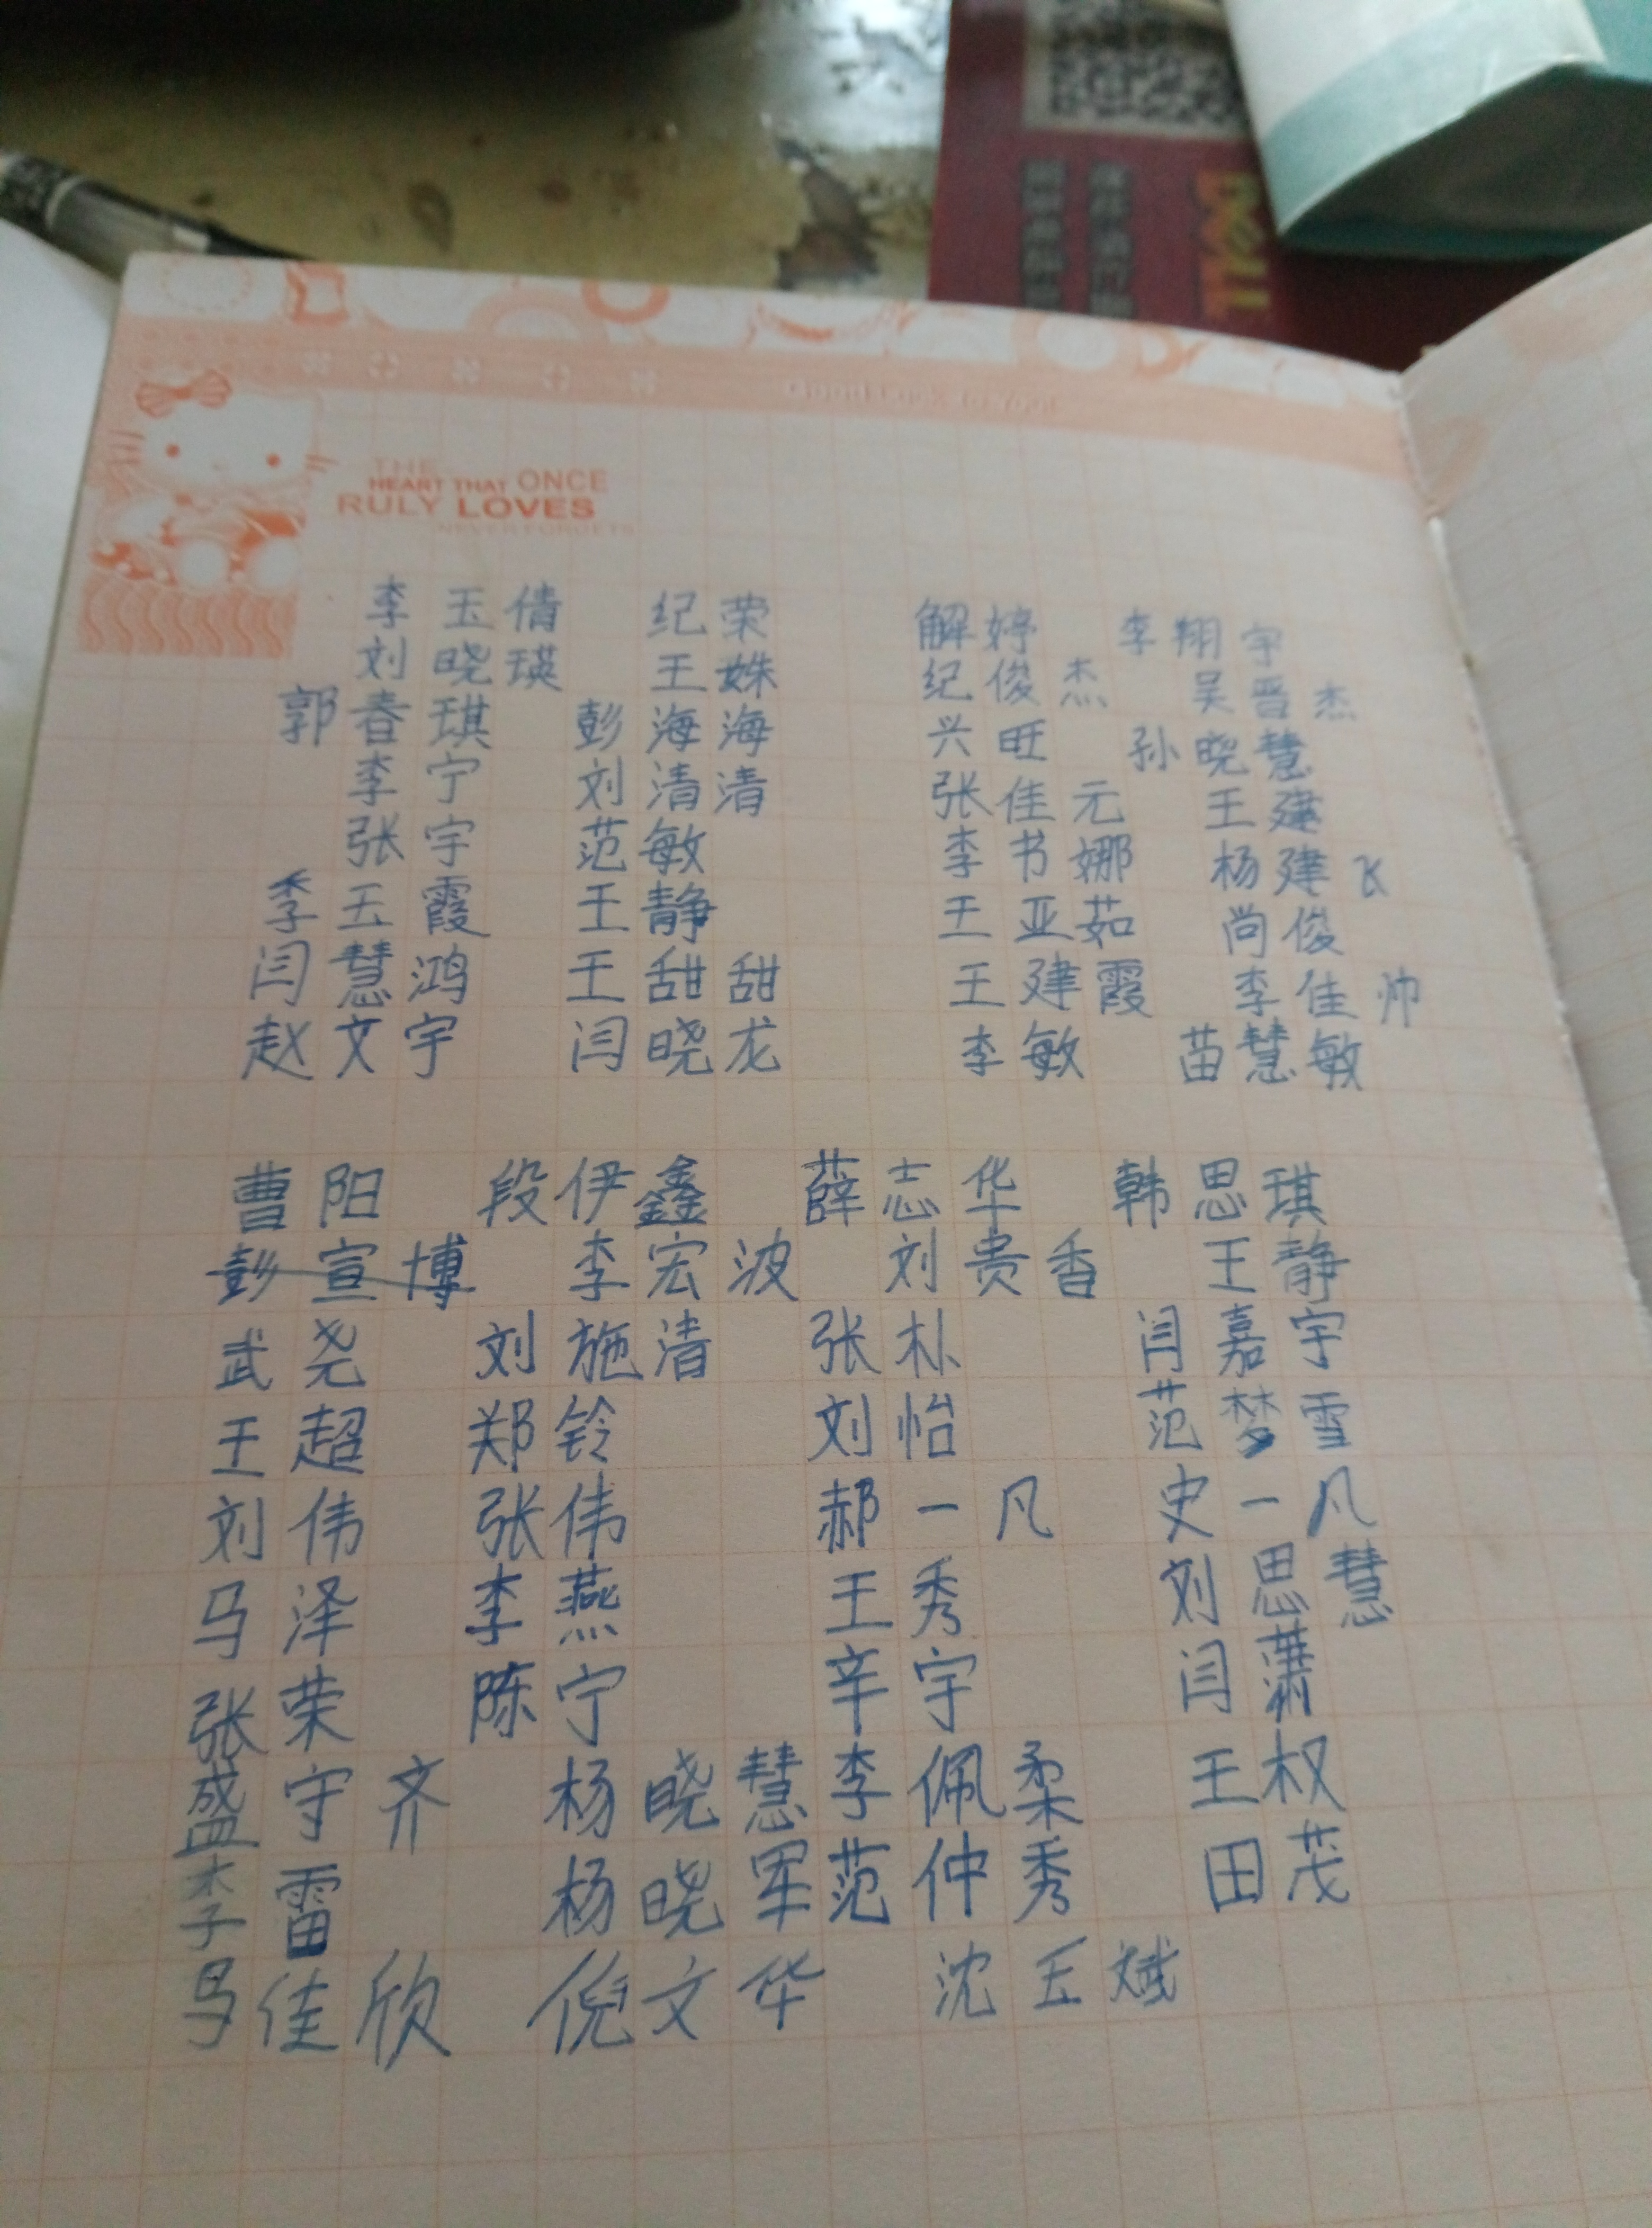 Good Luck to You!
THE
HEART THAT ONCE
RULY LOVES
NEVER FORGETS
李玉倩 纪荣 解婷 李翔宇
刘晓瑛 王姝 纪俊杰 吴晋杰
郭春琪 彭海海 兴旺 孙晓慧
李宁 刘清清 张佳元 王建
张宇 范敏 李书娜 杨建飞
季玉霞 王静 王亚茹 尚俊
闫慧鸿 王甜甜 王建霞 李佳帅
赵文宇 闫晓龙 李敏 苗慧敏
曹阳 段伊鑫 薛志华 韩思琪
彭宣博 李宏波 刘贵香 王静
武尧 刘施清 张朴 闫嘉宇
王超 郑铃 刘怡 范梦雪
刘伟 张伟 郝一凡 史一凡
马泽 李燕 王秀 刘思慧
张荣 陈宁 辛宇 闫萧
盛守齐 杨晓慧 李佩柔 王权
李雷 杨晓军 范仲秀 田茂
马佳欣 倪文华 沈玉斌